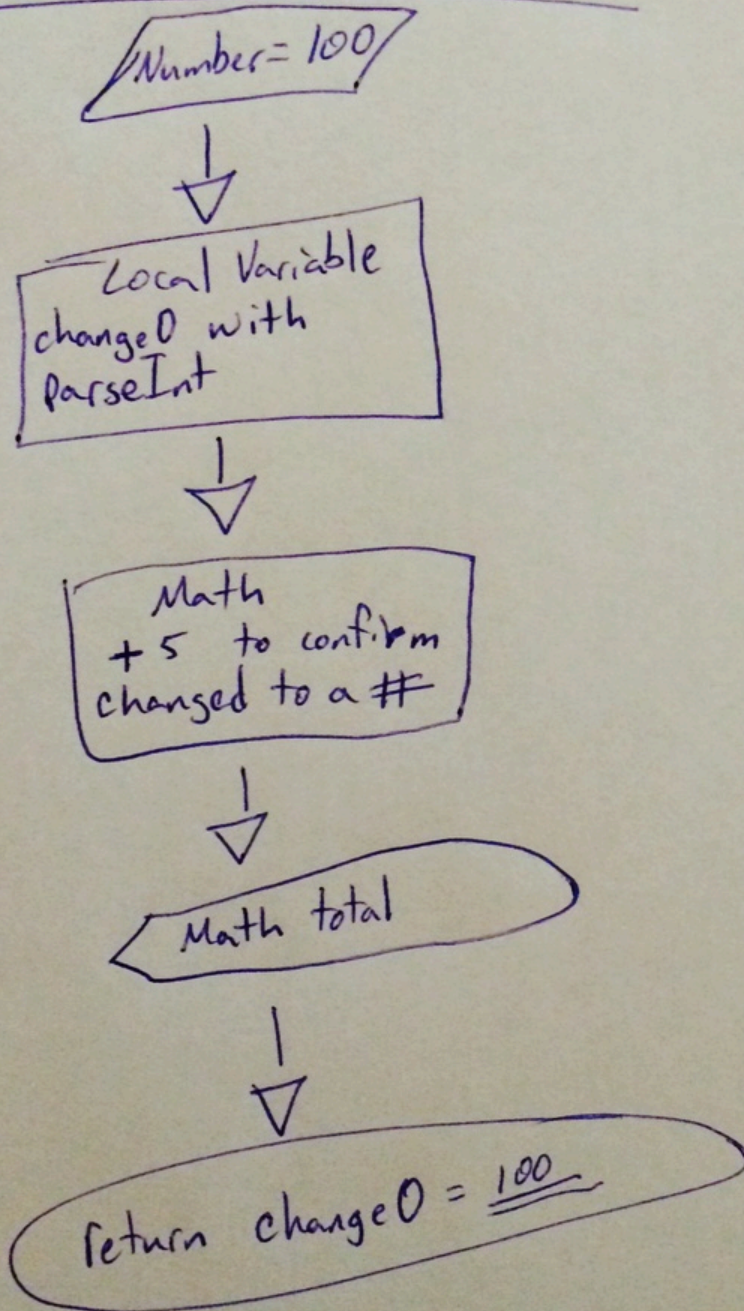 Number = 100
Local Variable
changeO with
parseInt
Math
+5 to confirm
changed to a #
Math total
return changeO = 100